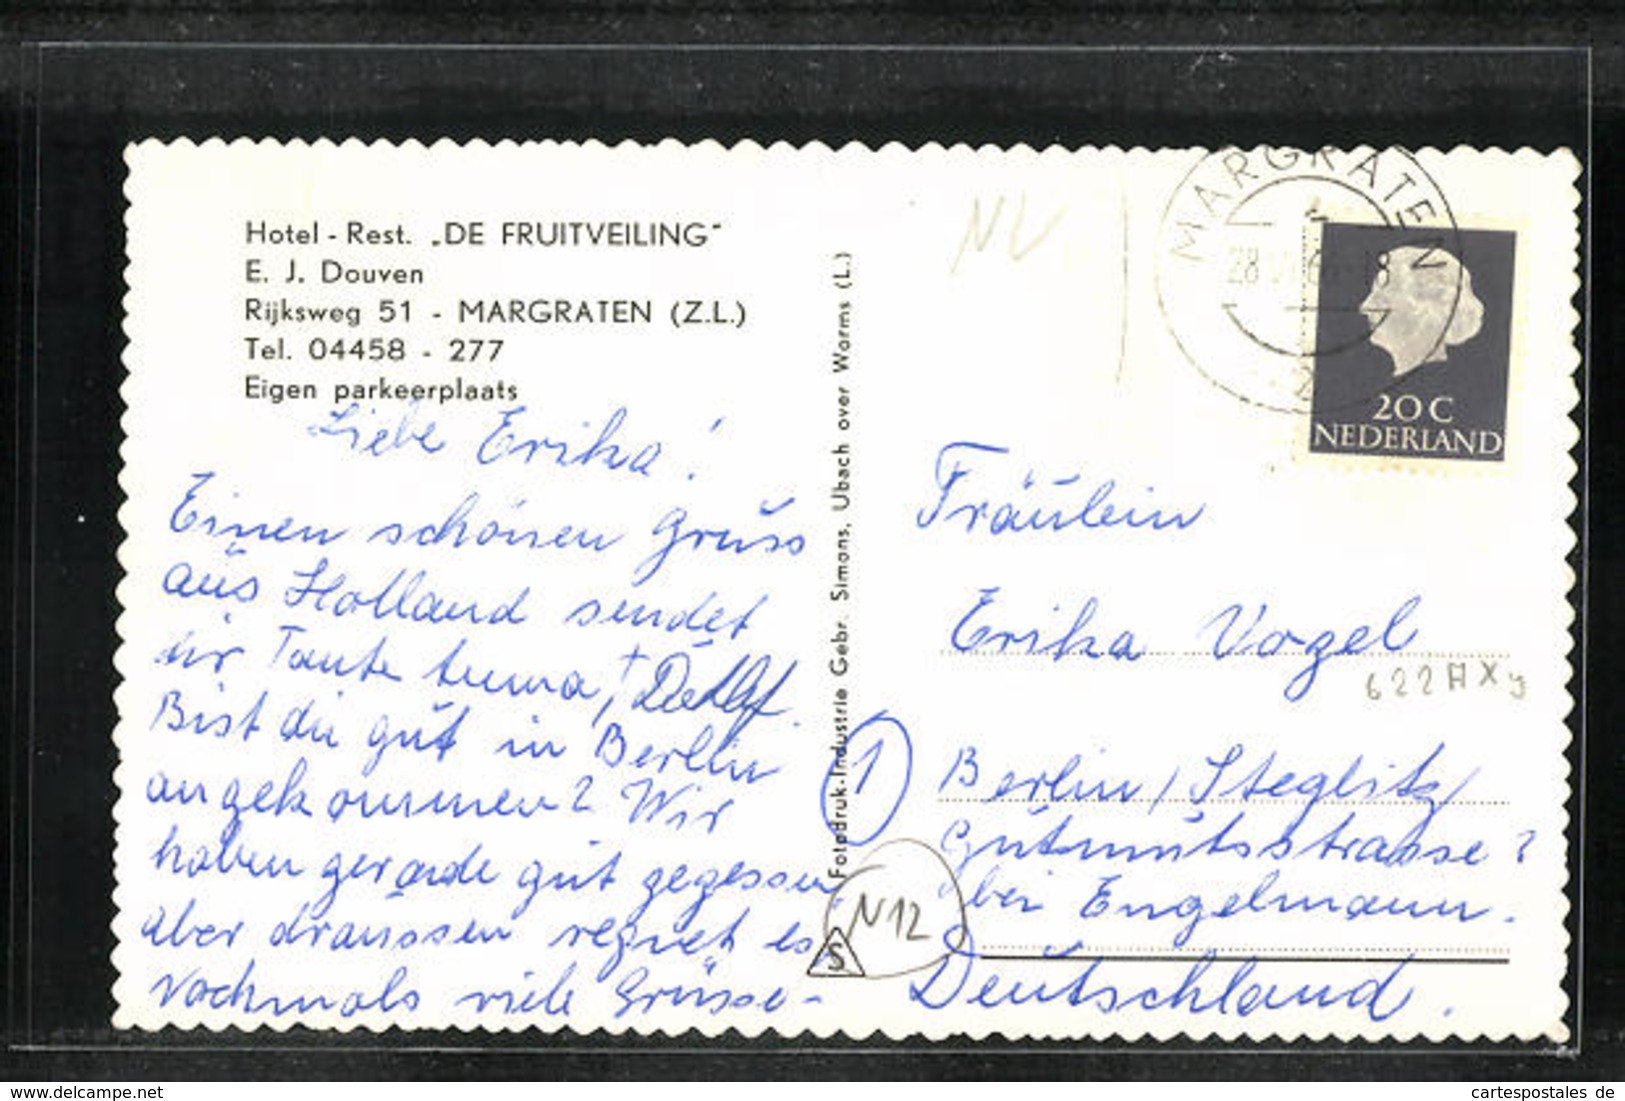 Hotel - Rest. „DE FRUITVEILING"
E. J. Douven
Rijksweg 51 - MARGRATEN (Z.L.)
Tel. 04458 - 277
Eigen parkeerplaats
Liebe Erika!
Einen schönen Gruss
aus Holland sendet
dir Tante + Detlef.
Bist du gut in Berlin
angekommen? Wir
haben gerade gut gegessen
aber draussen regnet es
Nochmals viele Grüsse-
Fotodruk-Industrie Gebr. Simons, Ubach over Worms (L.)
NL
MARGRATEN
28
20 C
NEDERLAND
Fräulein
Erika Vogel
622AXy
1
Berlin/Steglitz
Gutsmutsstrasse 2
bei Engelmann.
Deutschland.
N12
S
cartespostales.eu
cartespostales de